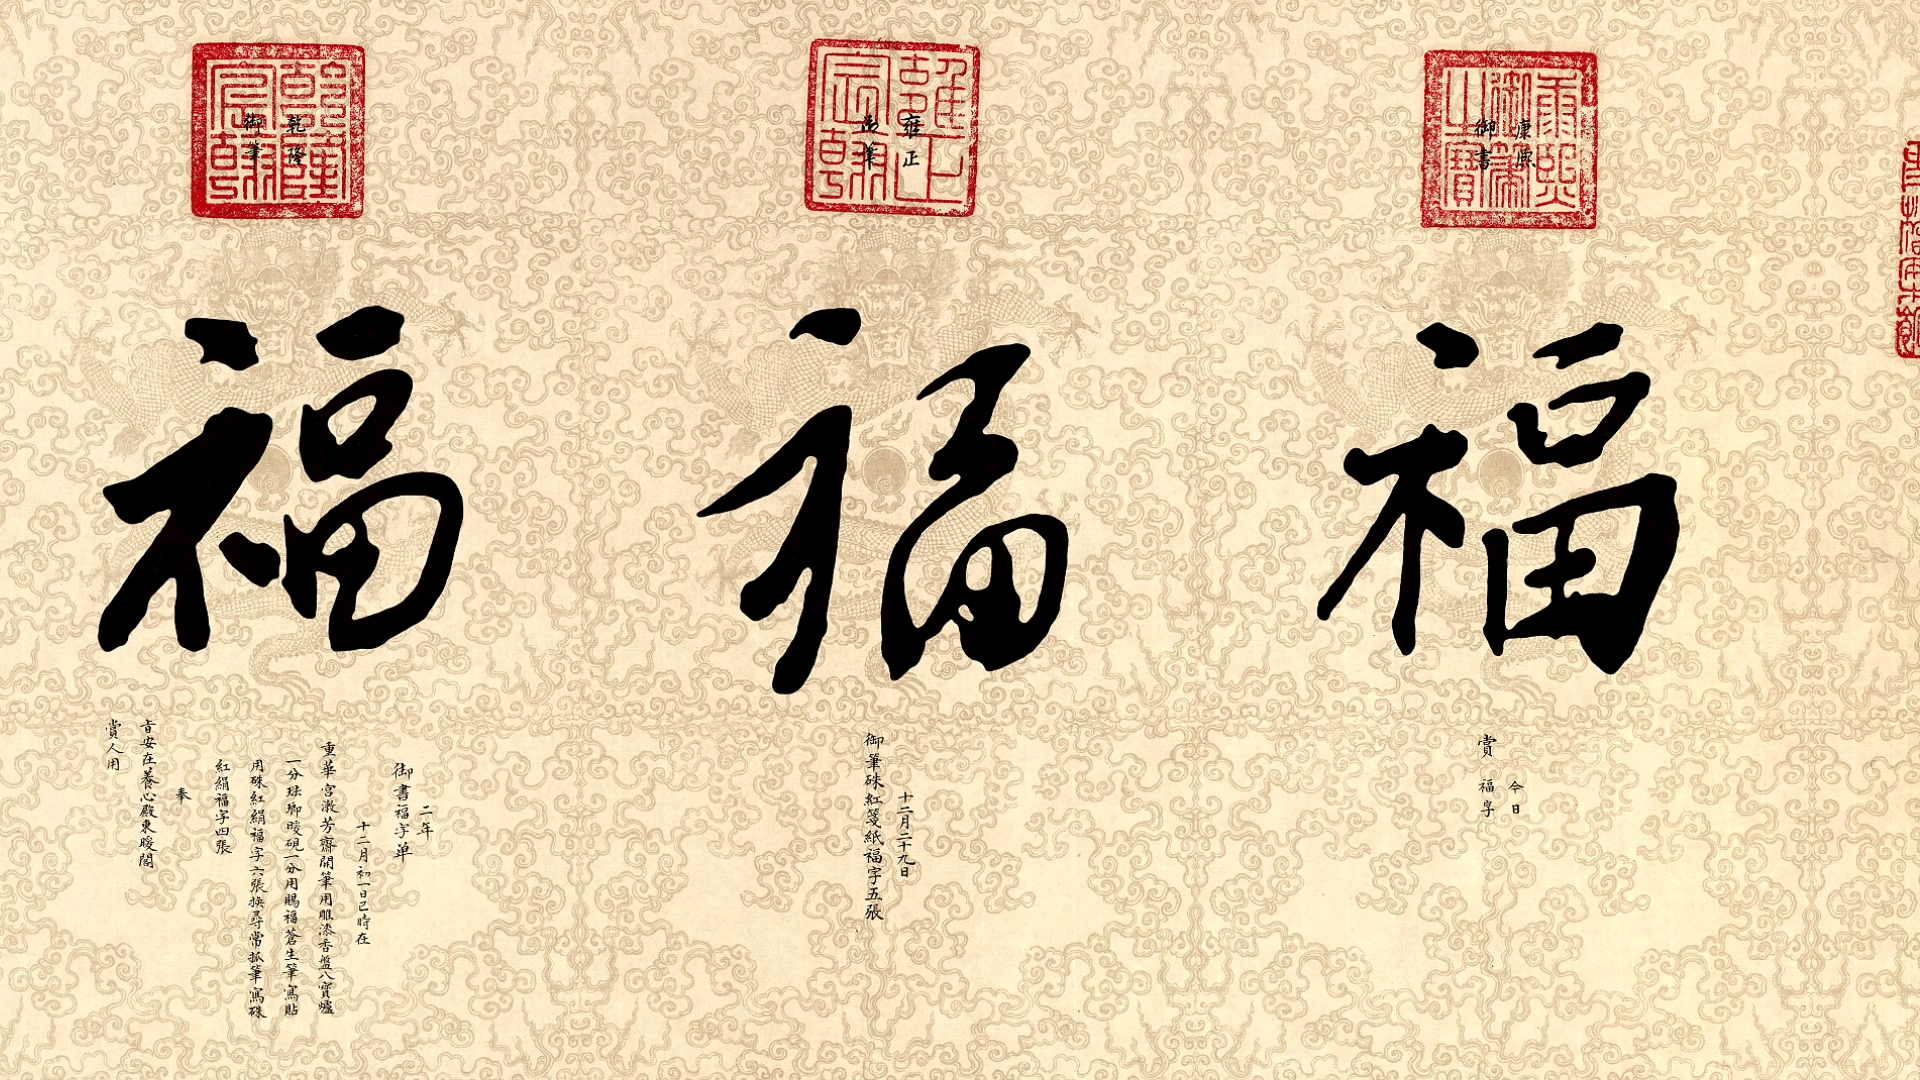 康熙御筆之寶
康熙
御書
福
今日
賞福字
雍正宸翰
雍正
御筆
福
十二月二十九日
御筆硃紅箋紙福字五張
乾隆宸翰
乾隆
御筆
福
二年
御書福字單
十二月初一日巳時在
重華宮漱芳齋開筆用雕漆香盤八寶爐
一分琺瑯暖硯一分用賜福蒼生筆寫貼
用硃紅絹福字六張換尋常抓筆寫硃
紅絹福字四張
奉
旨安在養心殿東暖閣
賞人用